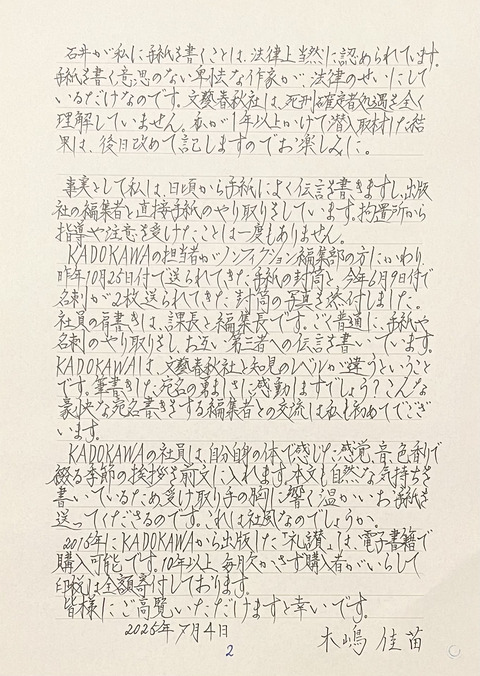 石井が私に手紙を書くことは、法律上当然に認められています。
手紙を書く意思のない卑怯な作家が、法律のせいにして
いるだけなのです。文藝春秋社は、死刑確定者処遇を全く
理解していません。私が1年以上かけて潜入取材した結
果は、後日改めて記しますのでお楽しみに。
事実として私は、日頃から手紙によく伝言を書きますし、出版
社の編集者と直接手紙のやり取りをしています。拘置所から
指導や注意を受けたことは一度もありません。
KADOKAWAの担当者がノンフィクション編集部の方にかわり、
昨年10月25日付で送られてきた手紙の封筒と、今年6月9日付で
名刺が2枚送られてきた封筒の写真を添付しました。
社員の肩書きは、課長と編集長です。ごく普通に、手紙や
名刺のやり取りをし、お互い第三者への伝言を書いています。
KADOKAWAは、文藝春秋社と知見のレベルが違うということ
です。筆書きした宛名の勇ましさに感動しますでしょう?こんな
豪快な宛名書きをする編集者との交流は私も初めてでござ
います。
KADOKAWAの社員は、自分自身の体で感じた感覚、音、色香りで
綴る季節の挨拶を前文に入れます。本文も自然な気持ちを
書いているため受け取り手の胸に響く温かいお手紙を
送ってくださるのです。これは社風なのでしょうか。
2015年にKADOKAWAから出版した『礼讃』は、電子書籍で
購入可能です。10年以上、毎月欠かさず購入者がいらして
印税は全額寄付しております。
皆様にご高覧いただけますと幸いです。
2025年7月4日
木嶋佳苗
2